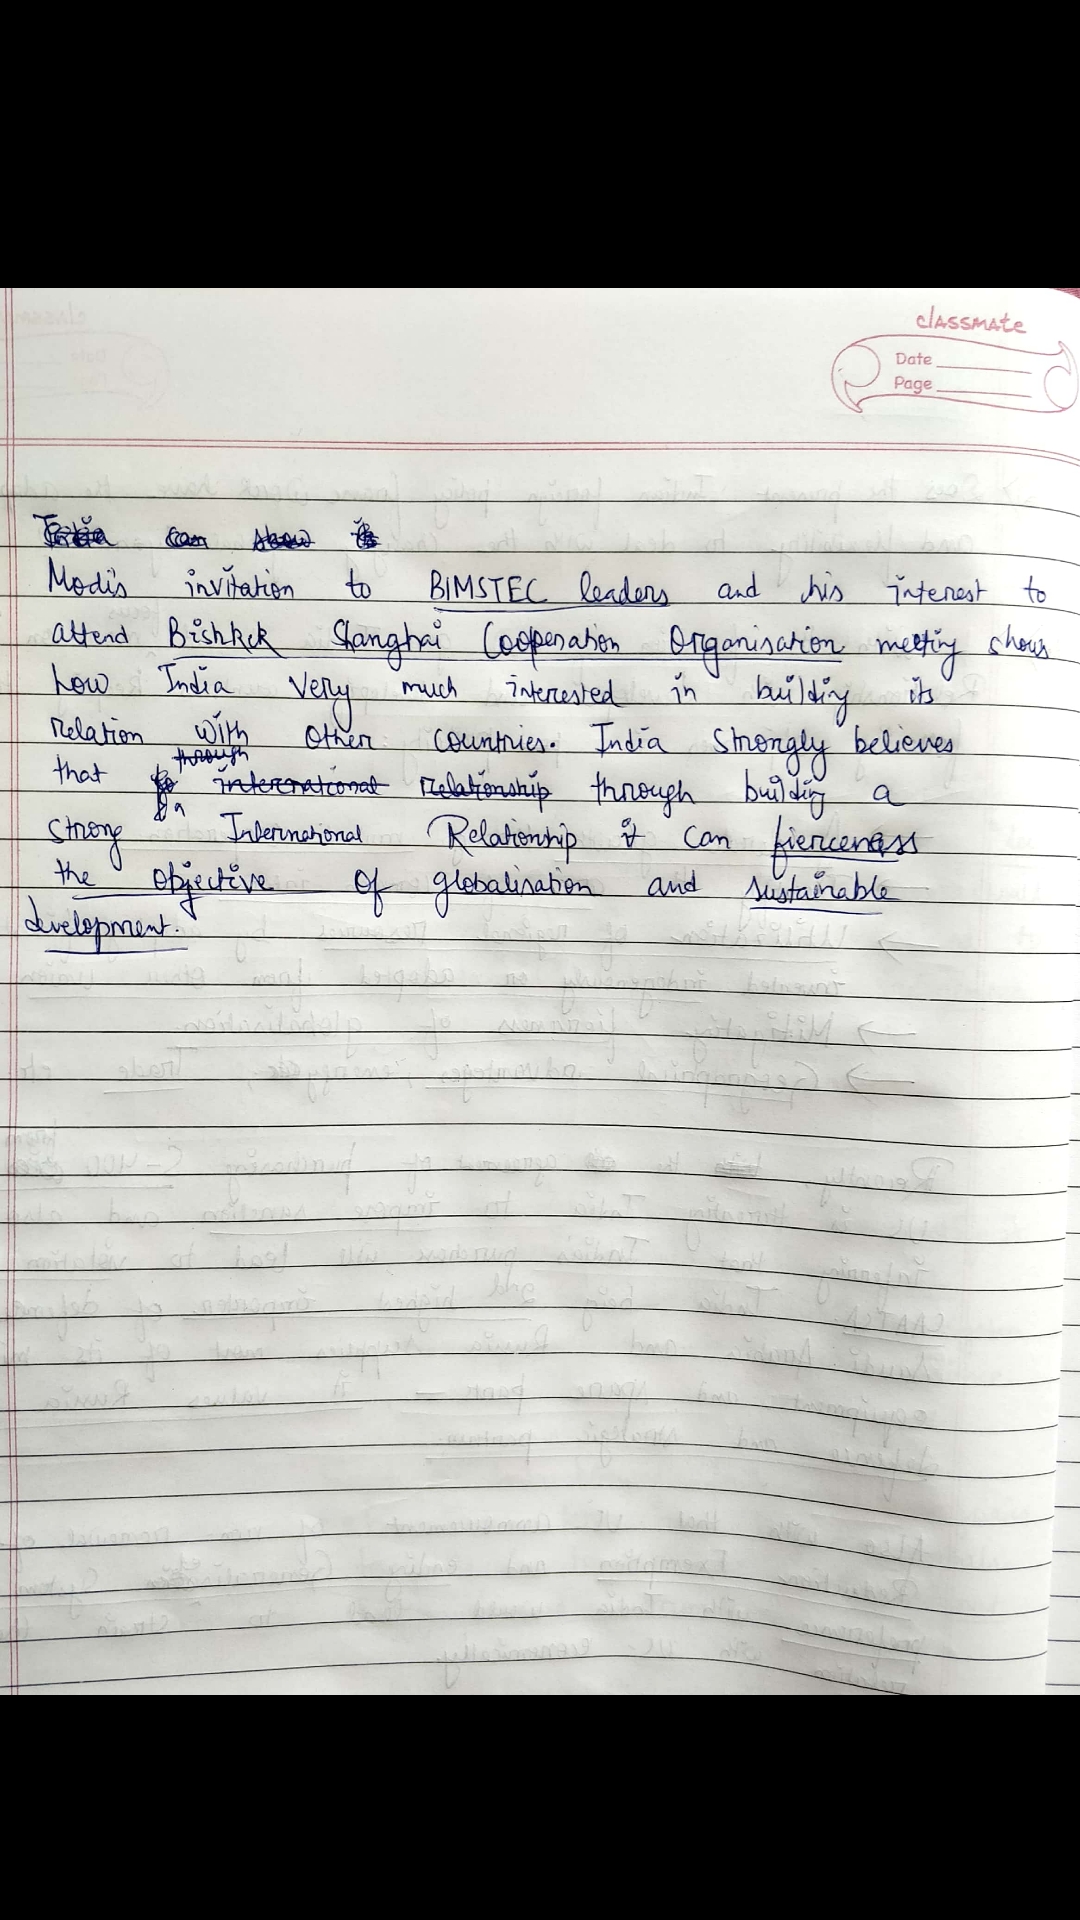 classmate
Date
Page
India can show its
Modi's invitation to BIMSTEC leaders and his interest to
attend Bishkek Shanghai Cooperation Organisation meeting shows
how India very much interested in building its
relation with other countries. India strongly believes
through
that to international relationship through building a
strong International Relationship it can fierceness
the objective of globalisation and sustainable
development.